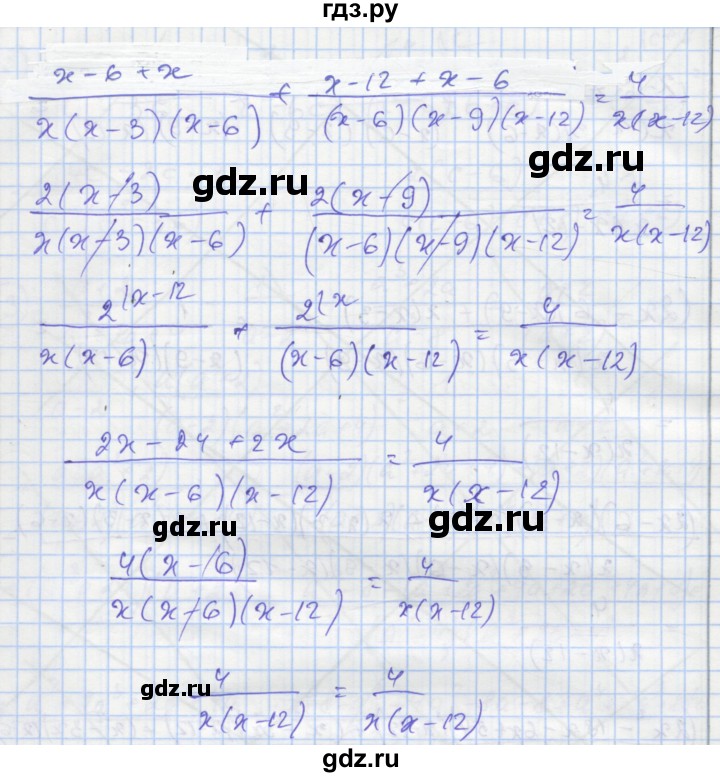 гдз.ру
x-6+x / x(x-3)(x-6) + x-12+x-6 / (x-6)(x-9)(x-12) = 4 / x(x-12)
gdz.ru gdz.ru
2(x-3) / x(x-3)(x-6) + 2(x-9) / (x-6)(x-9)(x-12) = 4 / x(x-12)
2(x-12 / x(x-6) + 2(x / (x-6)(x-12) = 4 / x(x-12)
2x-24+2x / x(x-6)(x-12) = 4 / x(x-12)
gdz.ru gdz.ru
4(x-6) / x(x-6)(x-12) = 4 / x(x-12)
gdz.ru
4 / x(x-12) = 4 / x(x-12)
gdz.ru